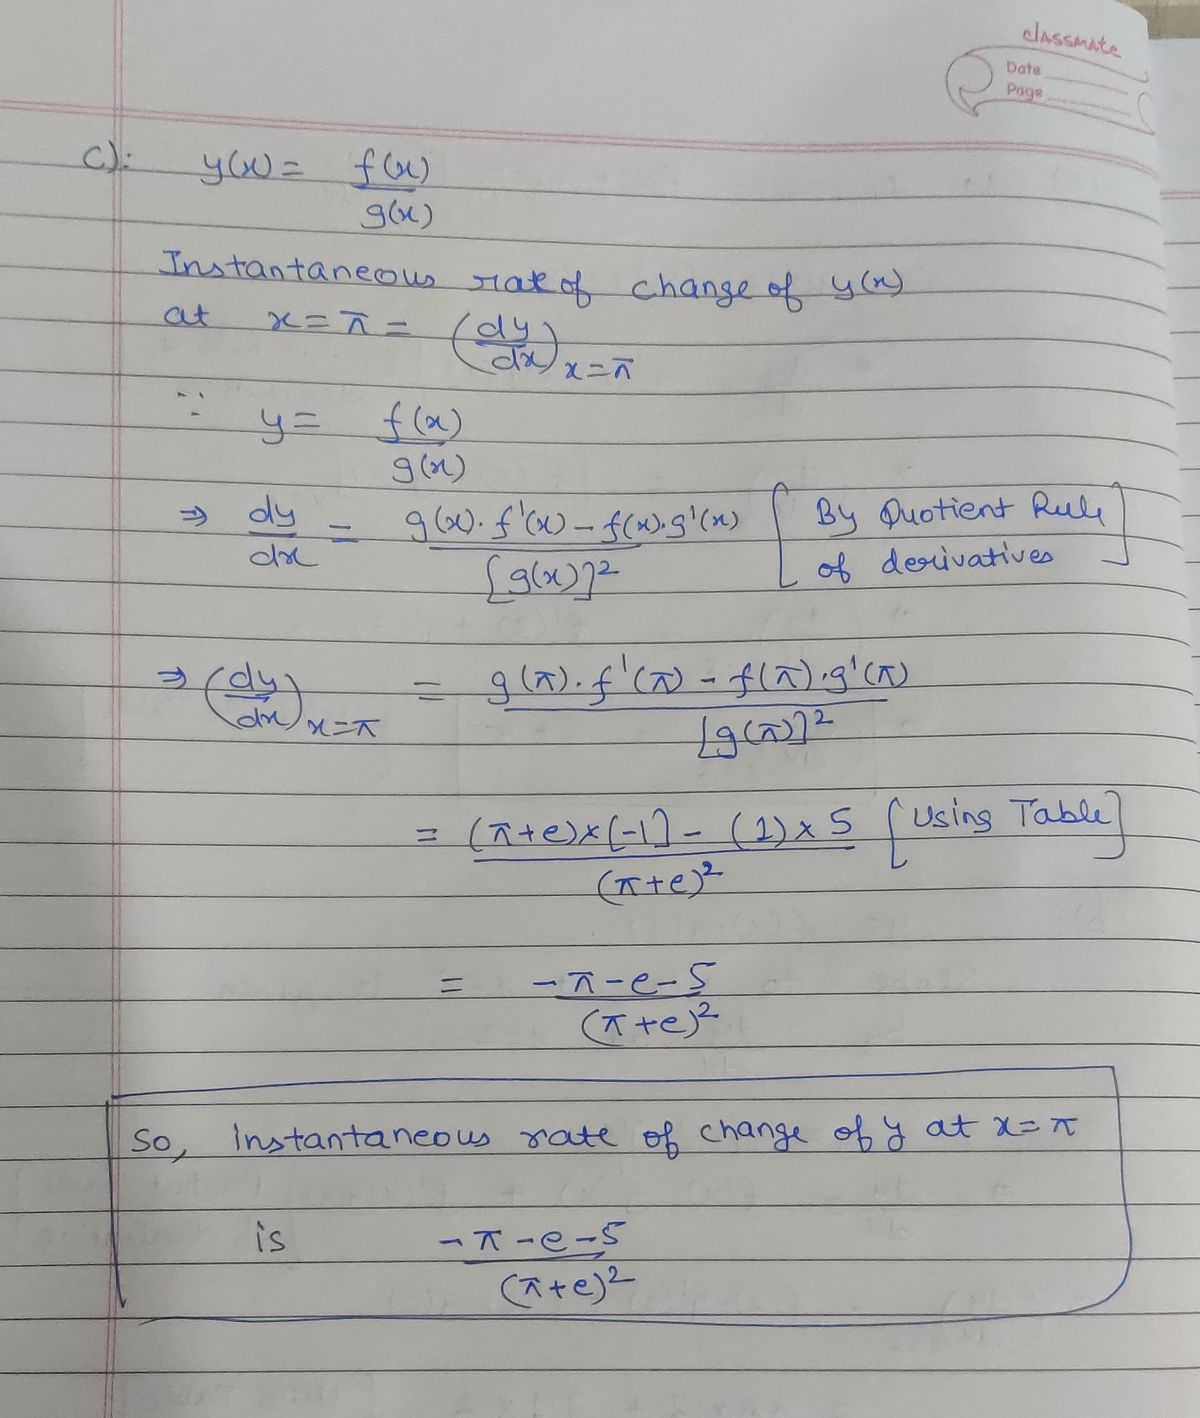 classmate
Date
Page
c):  y(x) = f(x) / g(x)
Instantaneous rate of change of y(x)
at x = π = (dy/dx) x=π
∵ y = f(x) / g(x)
⇒ dy/dx = g(x)·f'(x) - f(x)·g'(x) / [g(x)]² [By Quotient Rule of derivatives]
⇒ (dy/dx) x=π = g(π)·f'(π) - f(π)·g'(π) / [g(π)]²
= (π+e)×[-1] - (1)×5 / (π+e)² [Using Table]
= -π-e-5 / (π+e)²
So, instantaneous rate of change of y at x=π
is -π-e-5 / (π+e)²